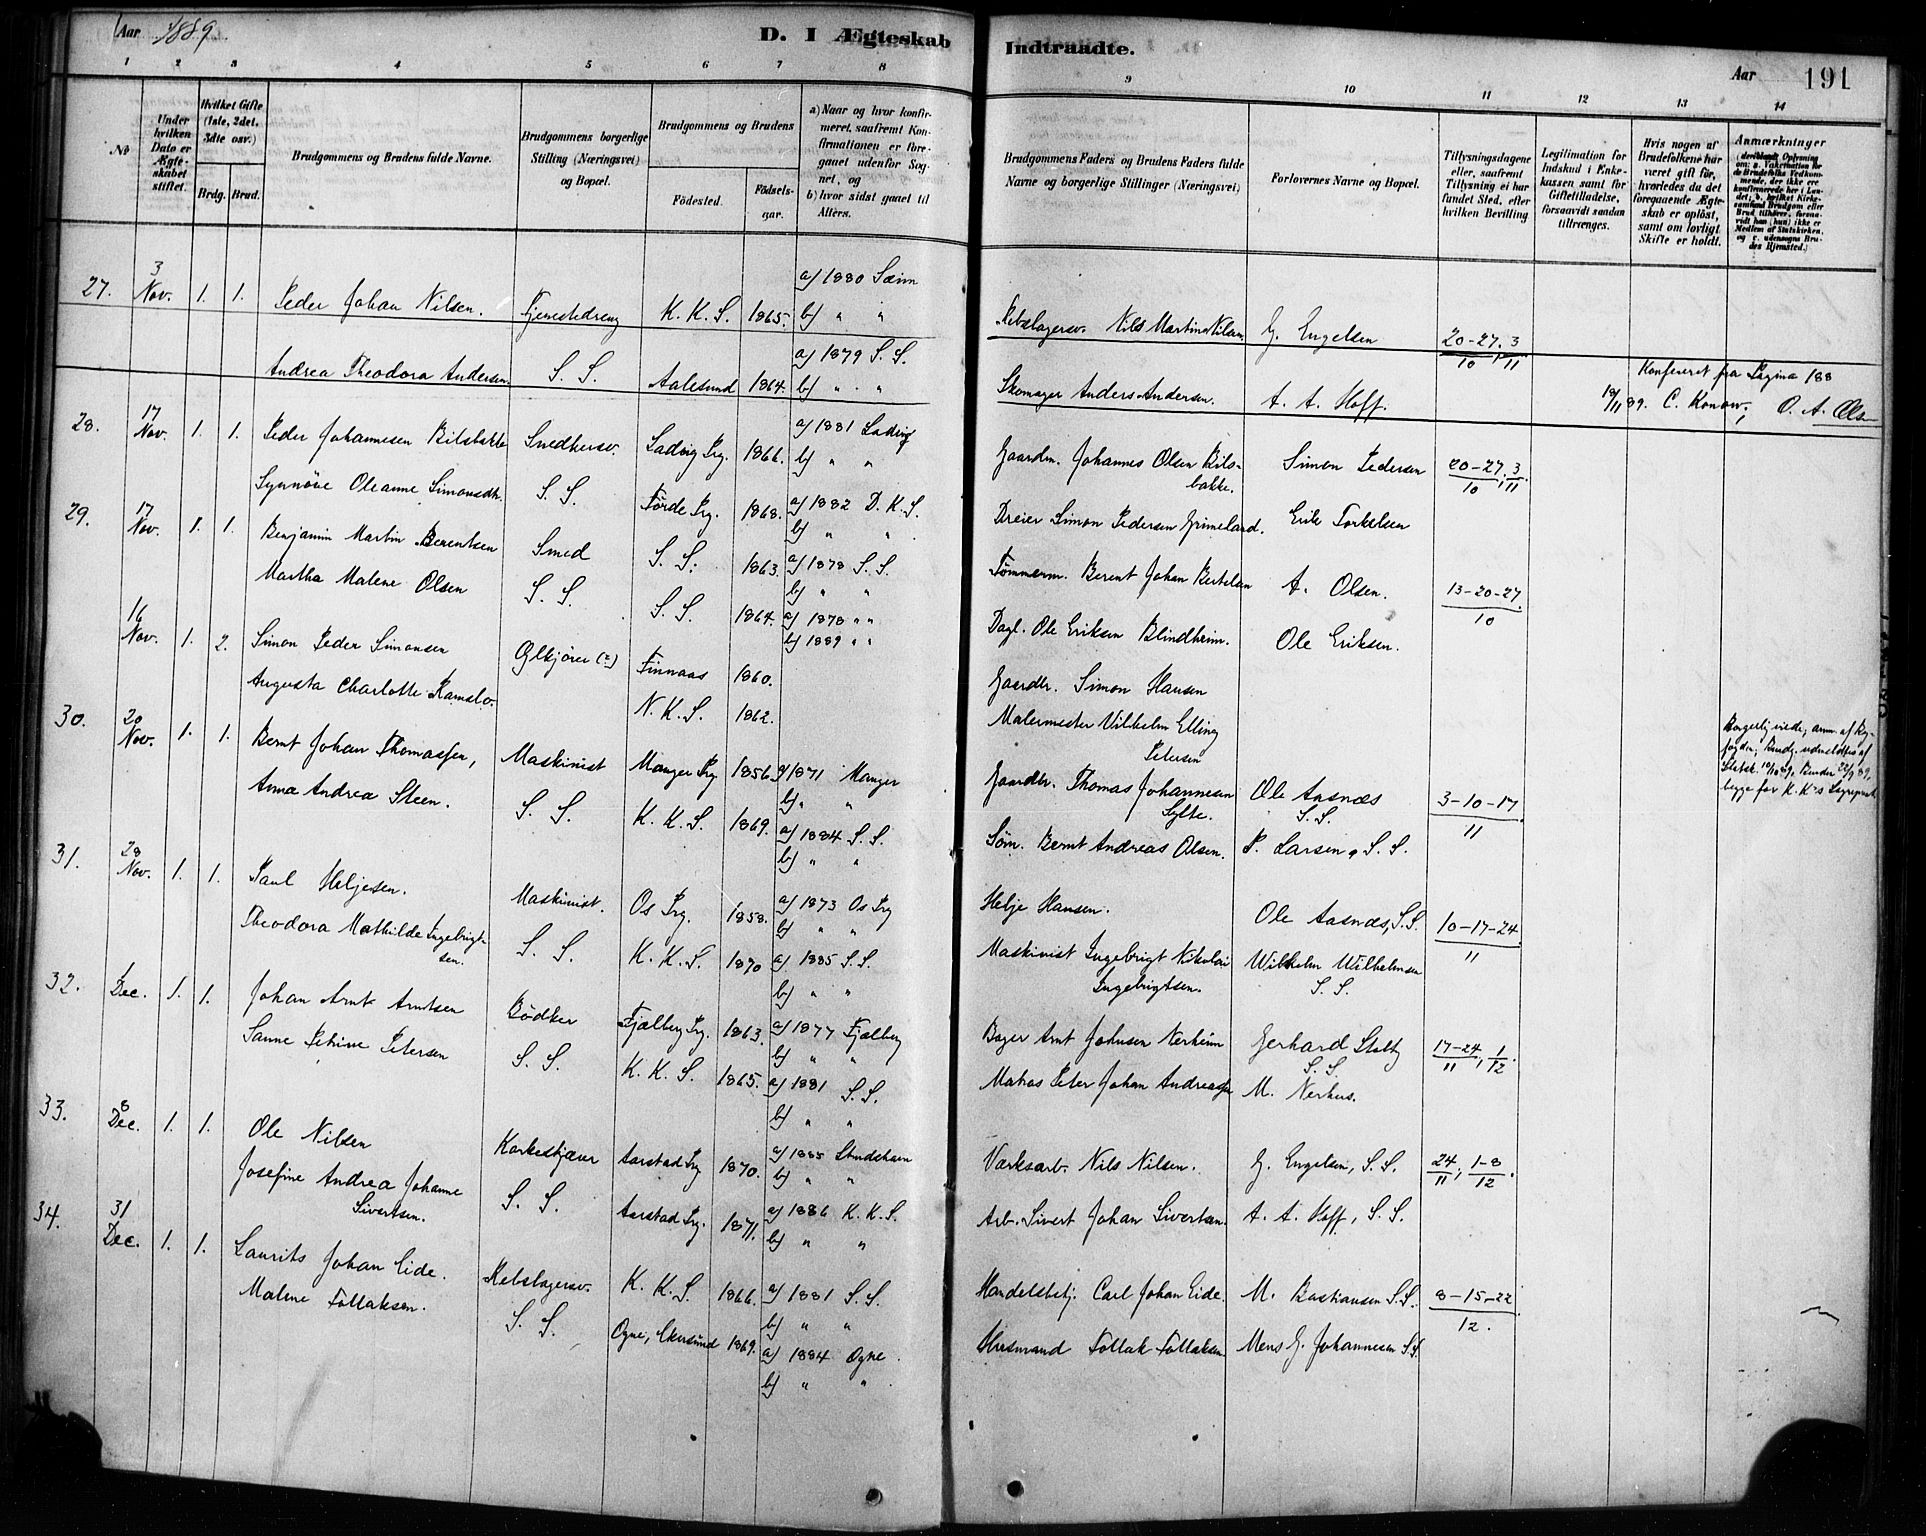 Aar 1889.
D. I Ægteskab Indtraadte.
Aar 191
1 2 3 4 5 6 7 8 9 10 11 12 13 14
No
Under hvilken Dato er Ægteskabet stiftet.
Hvilket Gifte (1ste, 2det, 3dte osv.)
Brdg. Brud.
Brudgommens og Brudens fulde Navne.
Brudgommens borgerlige Stilling (Næringsvei) og Bopæl.
Brudgommens og Brudens
Fødested. Fødselsaar.
a) Naar og hvor konfirmeret, saafremt Konfirmationen er foregaaet udenfor Sognet, og
b) hvor sidst gaaet til Alters.
Brudgommens Faders og Brudens Faders fulde Navne og borgerlige Stillinger (Næringsvei)
Forlovernes Navne og Bopæl.
Tillysningsdagene eller, saafremt Tillysning ei har fundet Sted, efter hvilken Bevilling
Legitimation for Indskud i Enkekassen samt for Giftetilladelse, forsaavidt saadan tiltrænges.
Hvis nogen af Brudefolkene har været gift før, hvorledes da det foregaaende Ægteskab er opløst, samt om lovligt Skifte er holdt.
Anmærkninger
27. 3 Nov. 1. 1. Peder Johan Nilsen. Tjenestedreng K. K. S. 1865. a) 1880 Sæim b) " " Rebslagersv. Nils Martin Nilsen. G. Engelsen 20-27/10, 3/11
Andrea Theodora Andersen. S. S. Aalesund 1864. a) 1879 S. S. b) " " Skomager Anders Andersen. A. A. Hoff.
Konfereret fra Pagina 188
19/11 89. C. Konow. O. A. Olsen
28. 17 Nov. 1. 1. Peder Johannesen Bilsbakke Snedkersv. Ladvig Prg. 1866. a) 1881 Ladvig b) " " Gaardm. Johannes Olsen Bilsbakke. Simon Pedersen 20-27/10, 3/11
Synnöve Oleanne Simonsdtr. S. S. Förde Prg. 1868. a) 1882 D. K. S. b) " " Dreier Simon Pedersen Grimeland. Erik Torkelsen
29. 17 Nov. 1. 1. Benjamin Martin Berentsen Smed S. S. 1863. a) 1878 S. S. b) " " Tömmerm. Berent Johan Bertelsen A. Olsen. 13-20-27/10
Martha Malene Olsen S. S. S. S. 1864. a) 1878 " " b) 1889 " " Dagl. Ole Eriksen Blindheim. Ole Eriksen.
16 Nov. 1. 2. Simon Peder Simonsen Ølkjører (?) Finnaas 1860. Gaardbr. Simon Hansen
Augusta Charlotte Ramslo. N. K. S. 1862. Malermester Vilhelm Elling Petersen
30. 20 Nov. 1. 1. Bernt Johan Thomassen, Maskinist Manger Prg 1856. a) 1871 Manger b) " " Gaardbr. Thomas Johannesen Sylte. Ole Aasnæs S. S. 3-10-17/11
Anna Andrea Steen. S. S. K. K. S. 1869. a) 1884 S. S. b) " " Söm. Bernt Andreas Olsen. P. Larsen, S. S.
31. 28 Nov. 1. 1. Paul Heljesen. Maskinist. Os Prg. 1858. a) 1873 Os Prg b) " " Helje Hansen. Ole Aasnæs, S. S. 10-17-24/11
Theodora Mathilde Ingebrigtsen. S. S. K. K. S. 1870 a) 1885 S. S. b) " " Maskinist Ingebrigt Nikolai Ingebrigtsen. Wilhelm Wilhelmsen S. S.
32. Dec. 1. 1. Johan Arnt Arntsen Bödker Fjælberg Prg. 1863. a) 1877 Fjælberg b) " " Bager Arnt Johnsen Nerheim Gerhard Stoltz S. S. 17-24/11, 1/12.
Sanne Petrine Petersen S. S. K. K. S. 1865. a) 1881 S. S. b) " " Matros Peter Johan Andreassen M. Nerhus.
33. 8 Dec. 1. 1. Ole Nilsen Korkeskjærer Aarstad Prg 1870. a) 1885 Studshavn b) " " Værksarb. Nils Nilsen. G. Engelsen, S. S. 24/11, 1-8/12.
Josefine Andrea Johanne Sivertsen. S. S. Aarstad Prg. 1871. a) 1886 K. K. S. b) " " Arb. Sivert Johan Sivertsen. A. A. Hoff, S. S.
34. 31 Dec. 1. 1. Laurits Johan Eide. Rebslagersv. K. K. S 1866. a) 1881 S. S. b) " " Handelsbetj. Carl Johan Eide. M. Bastiansen S. S. 8-15-22/12.
Malene Tollaksen. S. S. Ogne, Ekersund 1869. a) 1884 Ogne. b) " " Husmand Tollak Tollaksen. Mons G. Johannesen S. S.